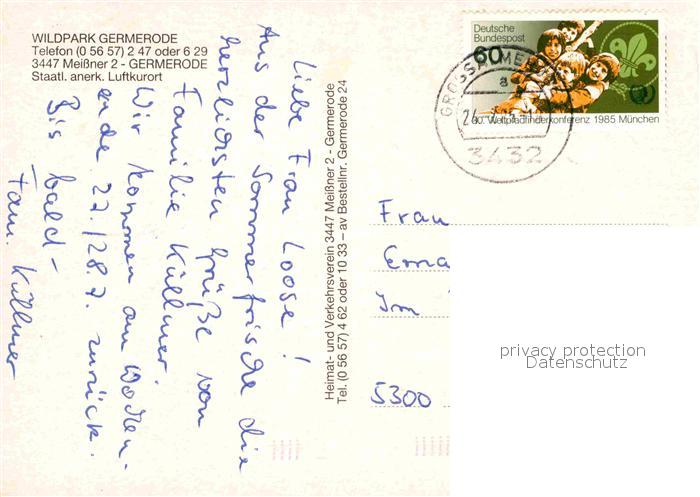 WILDPARK GERMERODE
Telefon (0 56 57) 2 47 oder 6 29
3447 Meißner 2 - GERMERODE
Staatl. anerk. Luftkurort
Liebe Frau Loose!
Aus der Sommerfrische die
herzlichsten Grüße von
Familie Küllmer.
Wir kommen am Wochen-
ende 27./28.7. zurück.
Bis bald -
Fam. Küllmer
Heimat- und Verkehrsverein 3447 Meißner 2 - Germerode
Tel. (0 56 57) 4 62 oder 10 33 – av Bestellnr. Germerode 24
Deutsche
Bundespost
60
30. Weltpfadfinderkonferenz 1985 München
a
3432
Frau
Erna
Im
5300
privacy protection
Datenschutz